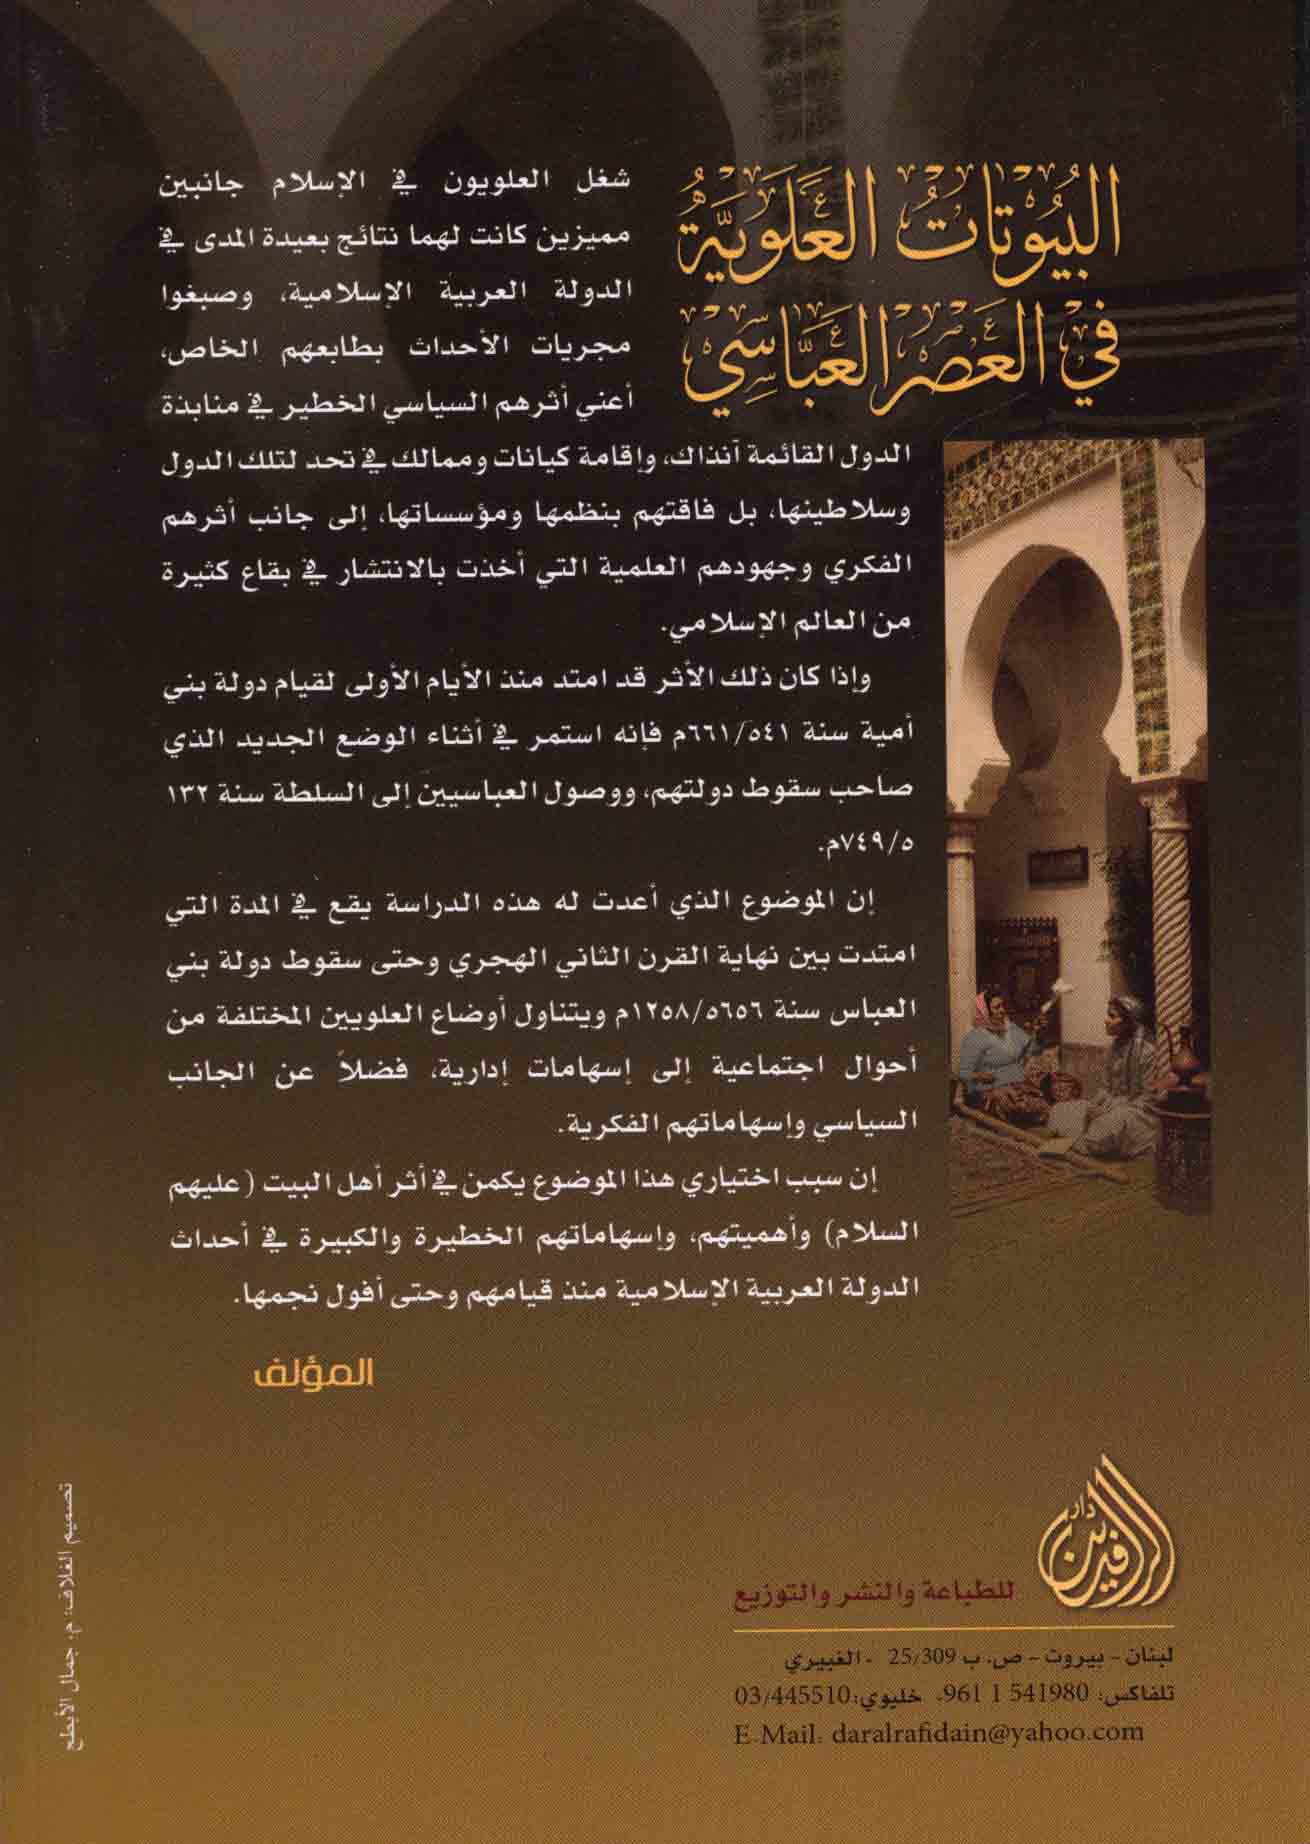 البُيُوتَاتُ العَلَوِيَّةُ
فِي العَصْرِ العَبَّاسِيِّ
شغل العلويون في الإسلام جانبين
مميزين كانت لهما نتائج بعيدة المدى في
الدولة العربية الإسلامية، وصبغوا
مجريات الأحداث بطابعهم الخاص،
أعني أثرهم السياسي الخطير في منابذة
الدول القائمة آنذاك، وإقامة كيانات وممالك في تحد لتلك الدول
وسلاطينها، بل فاقتهم بنظمها ومؤسساتها، إلى جانب أثرهم
الفكري وجهودهم العلمية التي أخذت بالانتشار في بقاع كثيرة
من العالم الإسلامي.
وإذا كان ذلك الأثر قد امتد منذ الأيام الأولى لقيام دولة بني
أمية سنة ٥٤١/٦٦١م فإنه استمر في أثناء الوضع الجديد الذي
صاحب سقوط دولتهم، ووصول العباسيين إلى السلطة سنة ١٣٢
٥/٧٤٩م.
إن الموضوع الذي أعدت له هذه الدراسة يقع في المدة التي
امتدت بين نهاية القرن الثاني الهجري وحتى سقوط دولة بني
العباس سنة ٥٦٥٦/١٢٥٨م ويتناول أوضاع العلويين المختلفة من
أحوال اجتماعية إلى إسهامات إدارية، فضلاً عن الجانب
السياسي وإسهاماتهم الفكرية.
إن سبب اختياري هذا الموضوع يكمن في أثر أهل البيت (عليهم
السلام) وأهميتهم، وإسهاماتهم الخطيرة والكبيرة في أحداث
الدولة العربية الإسلامية منذ قيامهم وحتى أفول نجمها.
المؤلف
دار الرافدين
للطباعة والنشر والتوزيع
لبنان - بيروت - ص. ب 25/309 - الغبيري
تلفاكس: 541980 1 961+ خليوي: 03/445510
E-Mail: daralrafidain@yahoo.com
تصميم الغلاف: م. جمال الأبطح